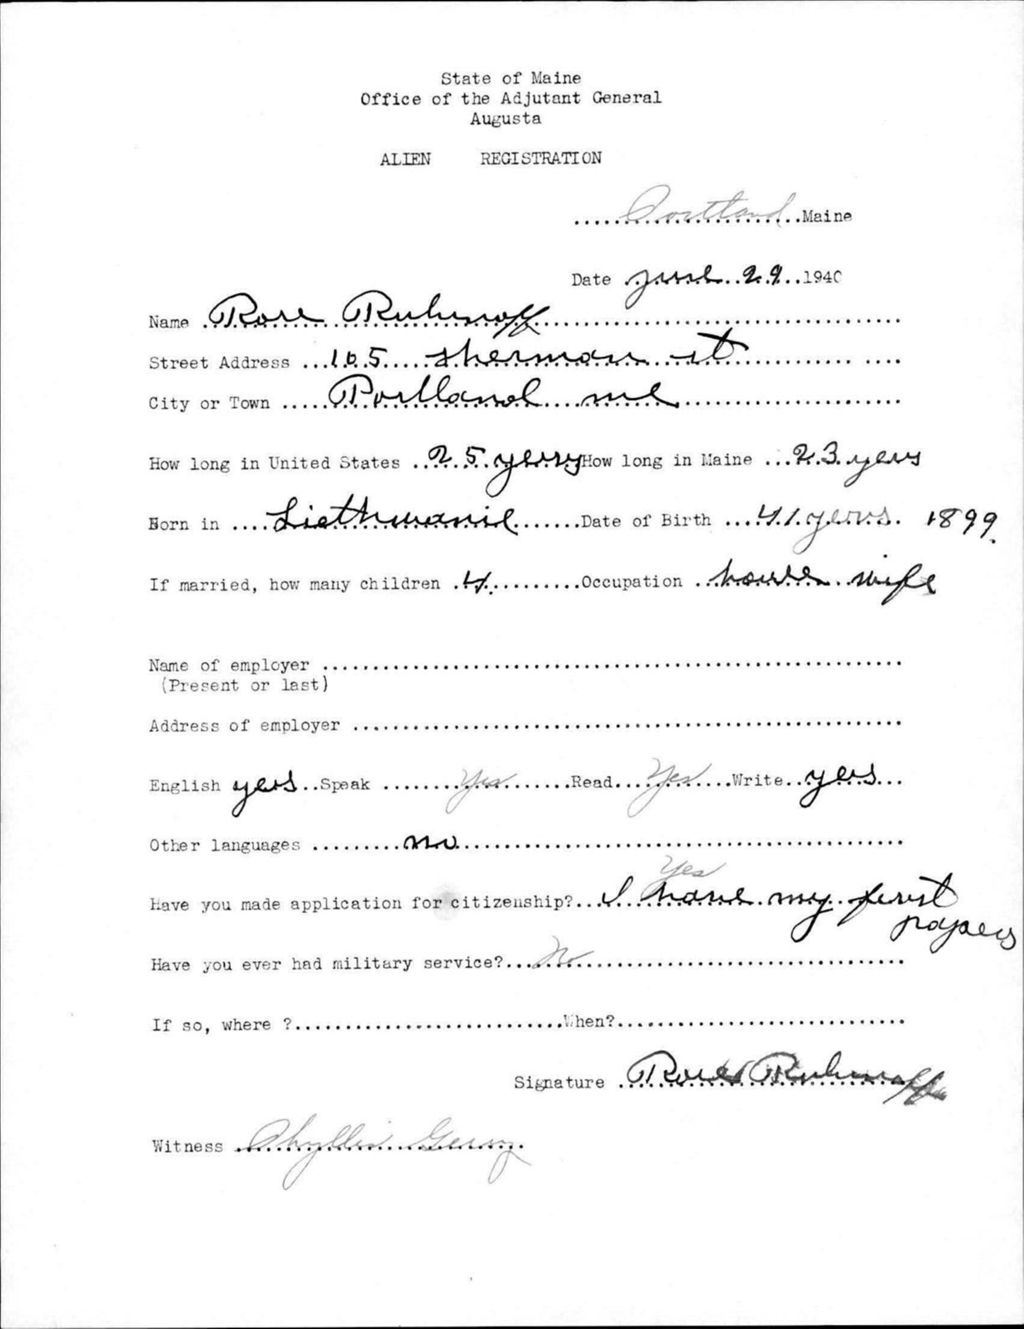 State of Maine
Office of the Adjutant General
Augusta
ALIEN REGISTRATION
Portland Maine
Date June 29 1940
Name Rose
Street Address 165 Sherman st
City or Town Portland me
How long in United States 25 yersy How long in Maine 23 yers
Born in Liethuanie Date of Birth 41 years. 1899.
If married, how many children 4. Occupation house wife
Name of employer
(Present or last)
Address of employer
English yes Speak Yes Read Yes Write yes
Other languages no
Yes
Have you made application for citizenship? I have my first
papers
Have you ever had military service? No
If so, where ? When?
Signature
Witness Phyllis Gerry